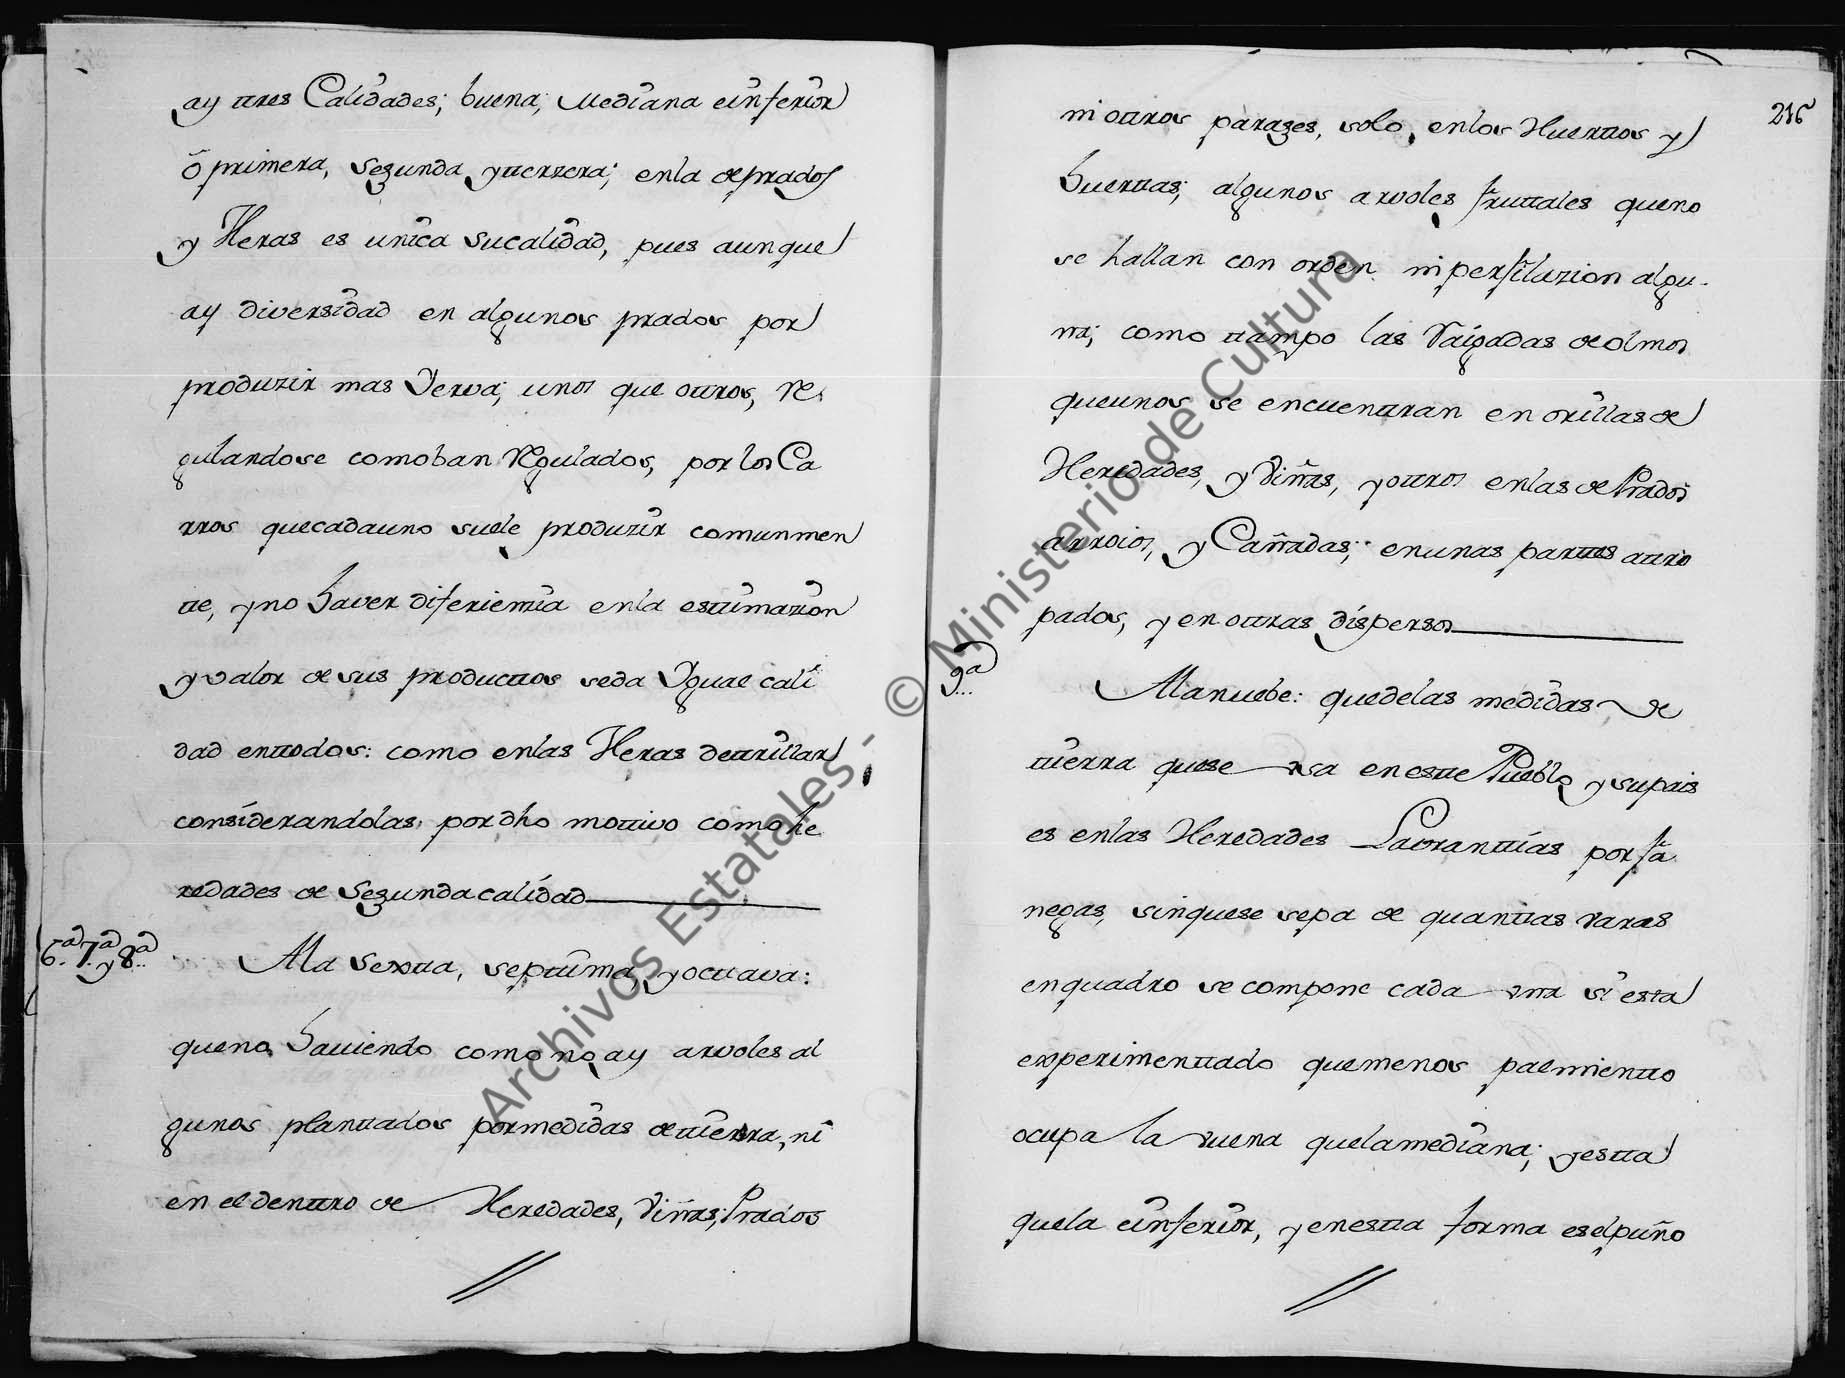 ay ttres Calidades; buena; Mediana einferior
õ primera, Segunda yterzera; enla deprados
y Heras es unica sucalidad, pues aunque
ay diversidad en algunos prados por
produzir mas Yerva; unos que ottros, re
gulandose comoban Regulados, por los Ca
rros quecadauno suele produzir comunmen
tte, yno haver diferienzia enla esttimazion
y valor de sus producttos seda Ygual cali
dad enttodos: como enlas Heras dettrillar
considerandolas por dho mottivo como he
redades de Segunda calidad
6.ª 7.ª y 8.ª
Ala sextta, septtima, yocttava:
queno haviendo como no ay arvoles al
gunos planttados pormedidas dettierra, ni
en el denttro de Heredades, Viñas, Prados
216
ni ottros parages, solo, enlos Huerttos y
huerttas; algunos arvoles fruttales queno
se hallan con orden ni perfilazion algu-
na; como ttampo las Saigadas de olmos
queunos se encuenttran en orillas de
Heredades, y Viñas, y ottros enlas de Prados
arroios, y Cañadas; enunas parttes attro
pados, y en ottras dispersos
9.ª
Alanuebe: quedelas medidas de
ttierra quese usa en estte Pueblo y supais
es enlas Heredades Lavranttias por fa
negas, sinquese sepa de quanttas varas
enquadro se compone cada una si esta
experimenttado quemenos palmientto
ocupa la vuena quelamediana; y estta
quela einferior, y enestta forma eselpuño
Archivos Estatales - © Ministerio de Cultura